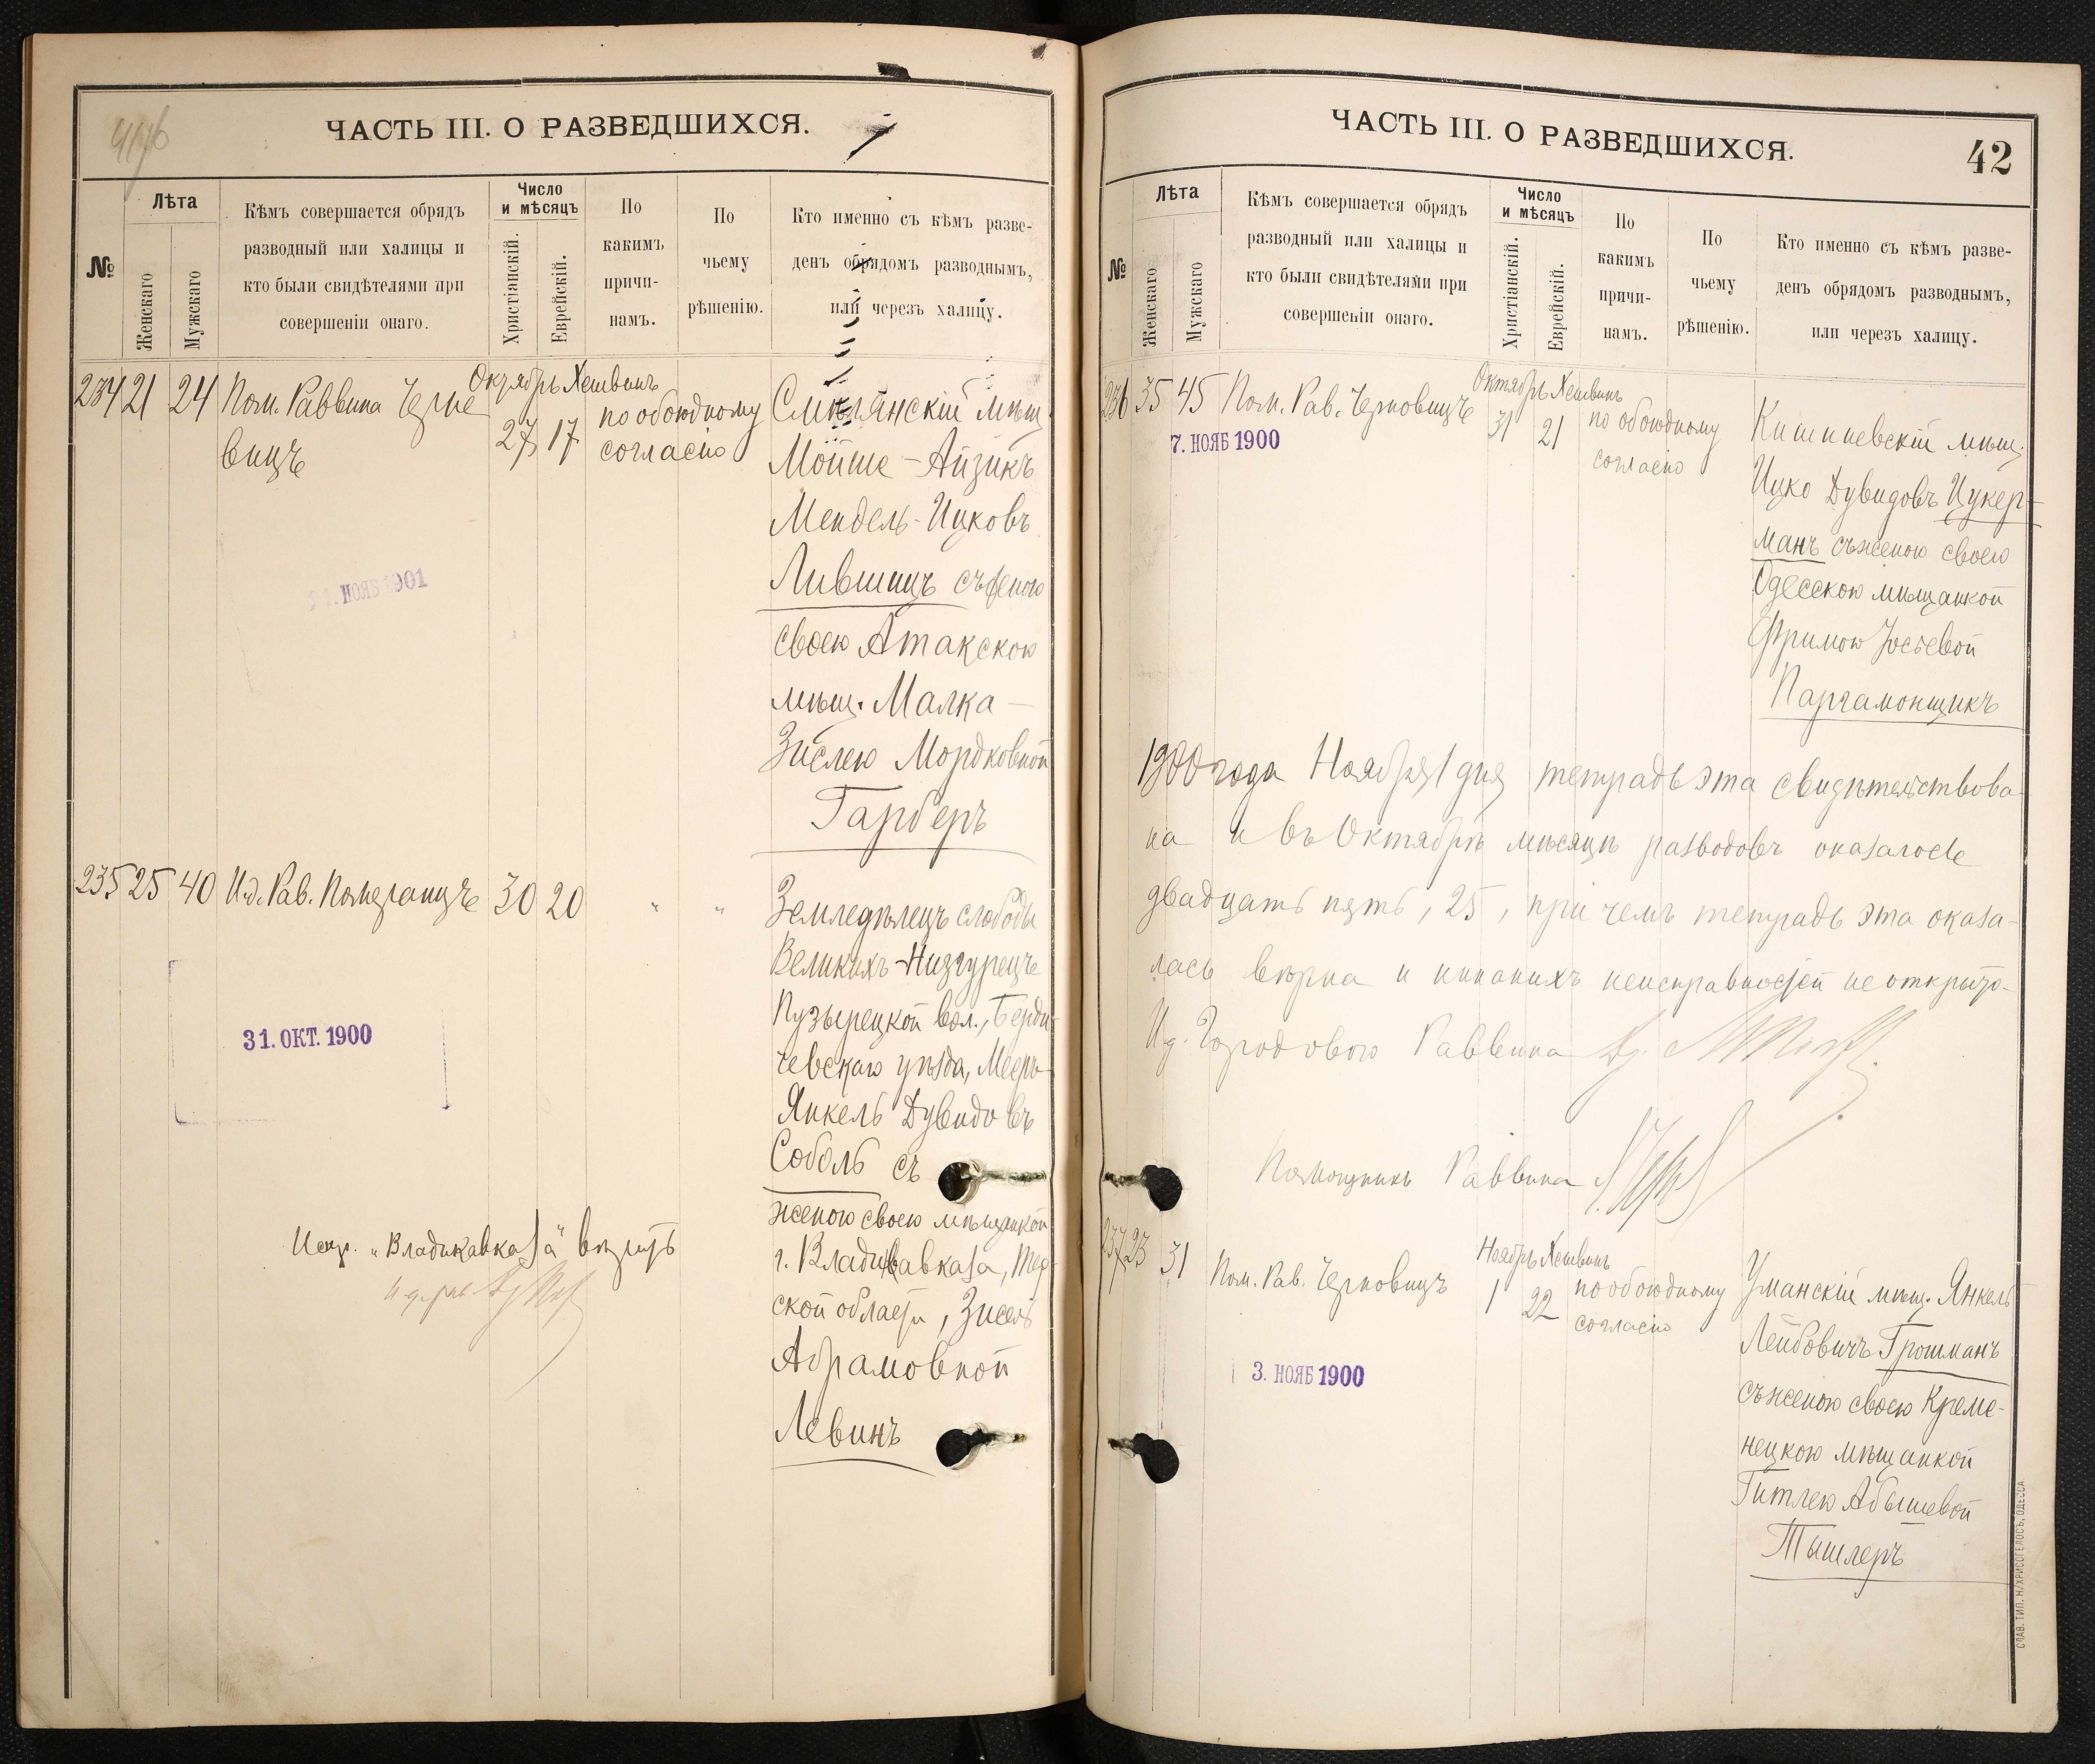 ЧАСТЬ III. О РАЗВЕДШИХСЯ.
№
Лѣта
Женскаго
Мужскаго
Кѣмъ совершается обрядъ
разводный или халицы и
кто были свидѣтелями при
совершеніи онаго.
Число
и мѣсяцъ
Христіанскій.
Еврейскій.
По
какимъ
причи-
намъ.
По
чьему
рѣшенію.
Кто именно съ кѣмъ разве-
денъ обрядомъ разводнымъ,
или черезъ халицу.
234 21 24 Пом. Раввина Черно
вицъ
Октябрь Хешвинъ
27 17
по обоюдному
согласію
мѣщ.
Мойше-Айзикъ
Мендель-Ицковъ
Лившицъ съ женою
своею Атакскою
мѣщ. Малка-
Зислею Мордковной
Гарберъ
НОЯБ 1901
235 25 40 И.д. Рав. Померанцъ 30 20 " "
Земледѣлецъ слободы
Великихъ-Низгурецъ
Пузырецкой вол., Берди-
чевскаго уѣзда, Мееръ-
Янкель Дувидовъ
Соболь съ
женою своею мѣщанкой
г. Владикавказа, Тер-
ской области, Зисель
Абрамовной
Левинъ
31. ОКТ. 1900
Испр. „Владикавказа" вѣрить
И.д. рав.
ЧАСТЬ III. О РАЗВЕДШИХСЯ.
42
№
Лѣта
Женскаго
Мужскаго
Кѣмъ совершается обрядъ
разводный или халицы и
кто были свидѣтелями при
совершеніи онаго.
Число
и мѣсяцъ
Христіанскій.
Еврейскій.
По
какимъ
причи-
намъ.
По
чьему
рѣшенію.
Кто именно съ кѣмъ разве-
денъ обрядомъ разводнымъ,
или черезъ халицу.
236 35 45 Пом. Рав. Черновицъ
7. НОЯБ 1900
Октябрь Хешвинъ
31 21
по обоюдному
согласію
Кишиневскій мѣщ.
Ицко Дувидовъ Цукер-
манъ съ женою своею
Одесскою мѣщанкой
Фримою Іосьевой
Паргамонщикъ
1900 года Ноября 1 дня тетрадь эта свидѣтельствова-
на и въ Октябрѣ мѣсяцѣ разводовъ оказалось
двадцать пять, 25, при чемъ тетрадь эта оказа-
лась вѣрна и никакихъ неисправностей не открыто-
И.д. Городового Раввина
Помощникъ Раввина
237 23 31 Пом. Рав. Черновицъ
Ноябрь Хешвинъ
1 22
по обоюдному
согласію
Уманскій мѣщ. Янкель
Лейбовичъ Грошманъ
съ женою своею Креме-
нецкою мѣщанкой
Гитлею Абышевой
Тышлеръ
3. НОЯБ 1900
СЛАВ. ТИП. Н. ХРИСОГЕЛОСЪ, ОДЕССА